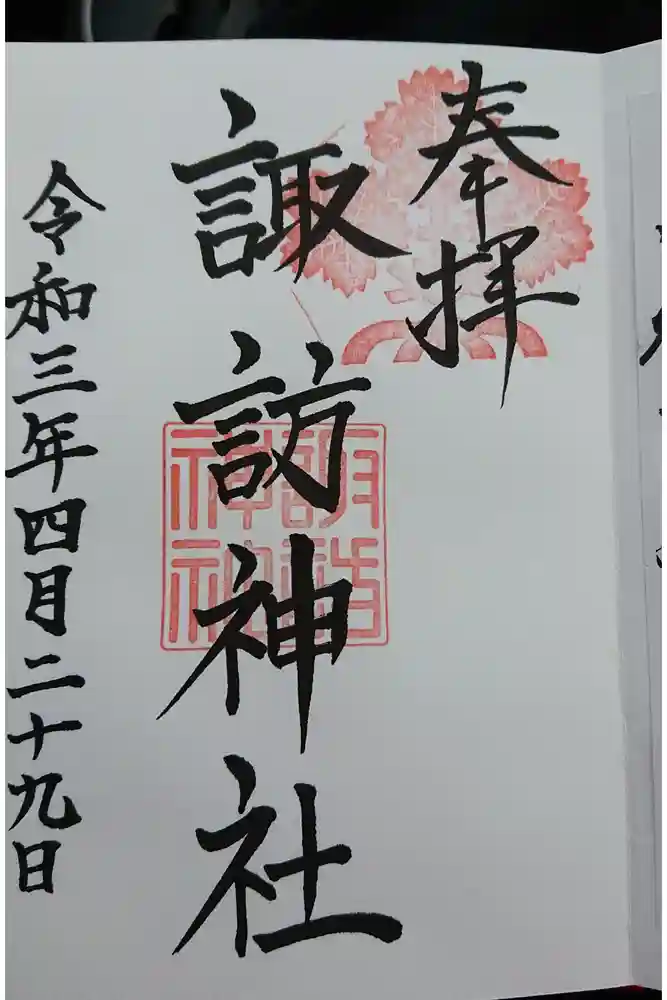 奉拝
諏訪神社
諏訪
神社
令和三年四月二十九日